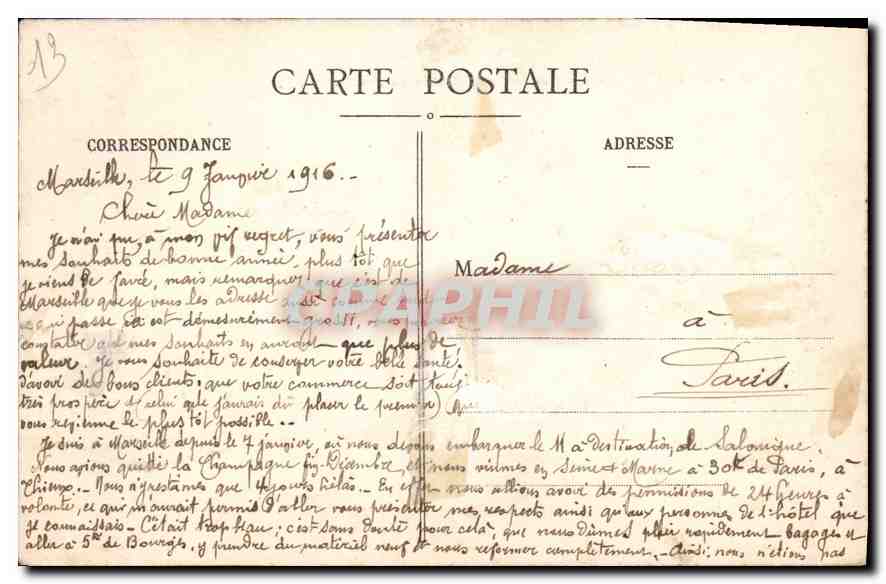 13
CARTE POSTALE
CORRESPONDANCE
ADRESSE
Marseille, le 9 Janvier 1916.
Chère Madame
Je n'ai pu, à mon vif regret, vous présenter
mes souhaits de bonne année, plus tôt que
je viens de, mais remarquez que c'est de
Marseille que je vous les adresse aussi comme tout
ce qui passe ici est démesurément grossi, vous pouvez
compter que mes souhaits en auront que plus de
valeur. Je vous souhaite de conserver votre belle santé.
d'avoir des bons clients, que votre commerce soit
très prospère et celui que j'aurais dû placer le premier) que
vous revienne le plus tôt possible..
Je suis à Marseille depuis le 7 janvier, où nous devons embarquer le 11 à destination de Salonique.
Nous avions quitté la Champagne fin Décembre, et nous vînmes en Seine et Marne à 30k de Paris, à
. Nous n'y restâmes que 4 jours hélas. En effet nous allions avoir des permissions de 24 heures à
volonté, ce qui m'aurait permis d'aller vous présenter mes respects ainsi qu'aux personnes de l'hôtel que
je connaissais. C'était trop beau; c'est sans doute pour cela, que nous dûmes plier rapidement bagages et
aller à 5k de Bourges, y prendre du matériel neuf et nous reformer complètement. Ainsi nous n'étions pas
Madame
à
Paris.
CPAPHIL